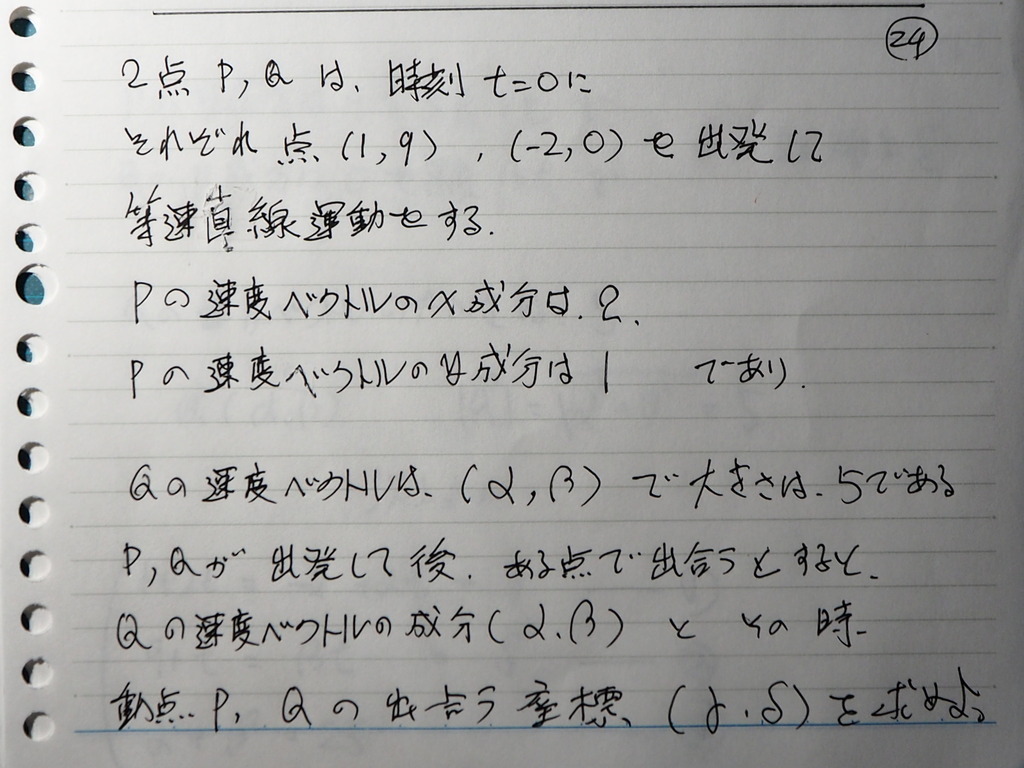 24
2点 P, Q は、時刻 t=0に
それぞれ 点 (1, 9) , (-2, 0) を 出発して
等速直線運動をする.
Pの速度ベクトルのx成分は. 2.
Pの速度ベクトルのy成分は 1 であり.
Qの速度ベクトルは、(α, β) で大きさは. 5である
P, Qが 出発して後. ある点で出合うとすると.
Qの速度ベクトルの成分(α. β) と その時.
動点 P, Qの出合う座標 (γ, δ) を求めよ。